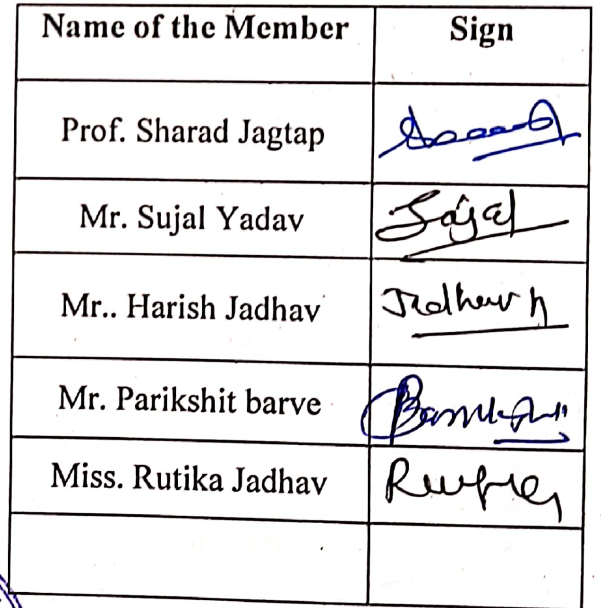 Name of the Member Sign
Prof. Sharad Jagtap
Mr. Sujal Yadav Sujal
Mr.. Harish Jadhav Jadhav h
Mr. Parikshit barve
Miss. Rutika Jadhav